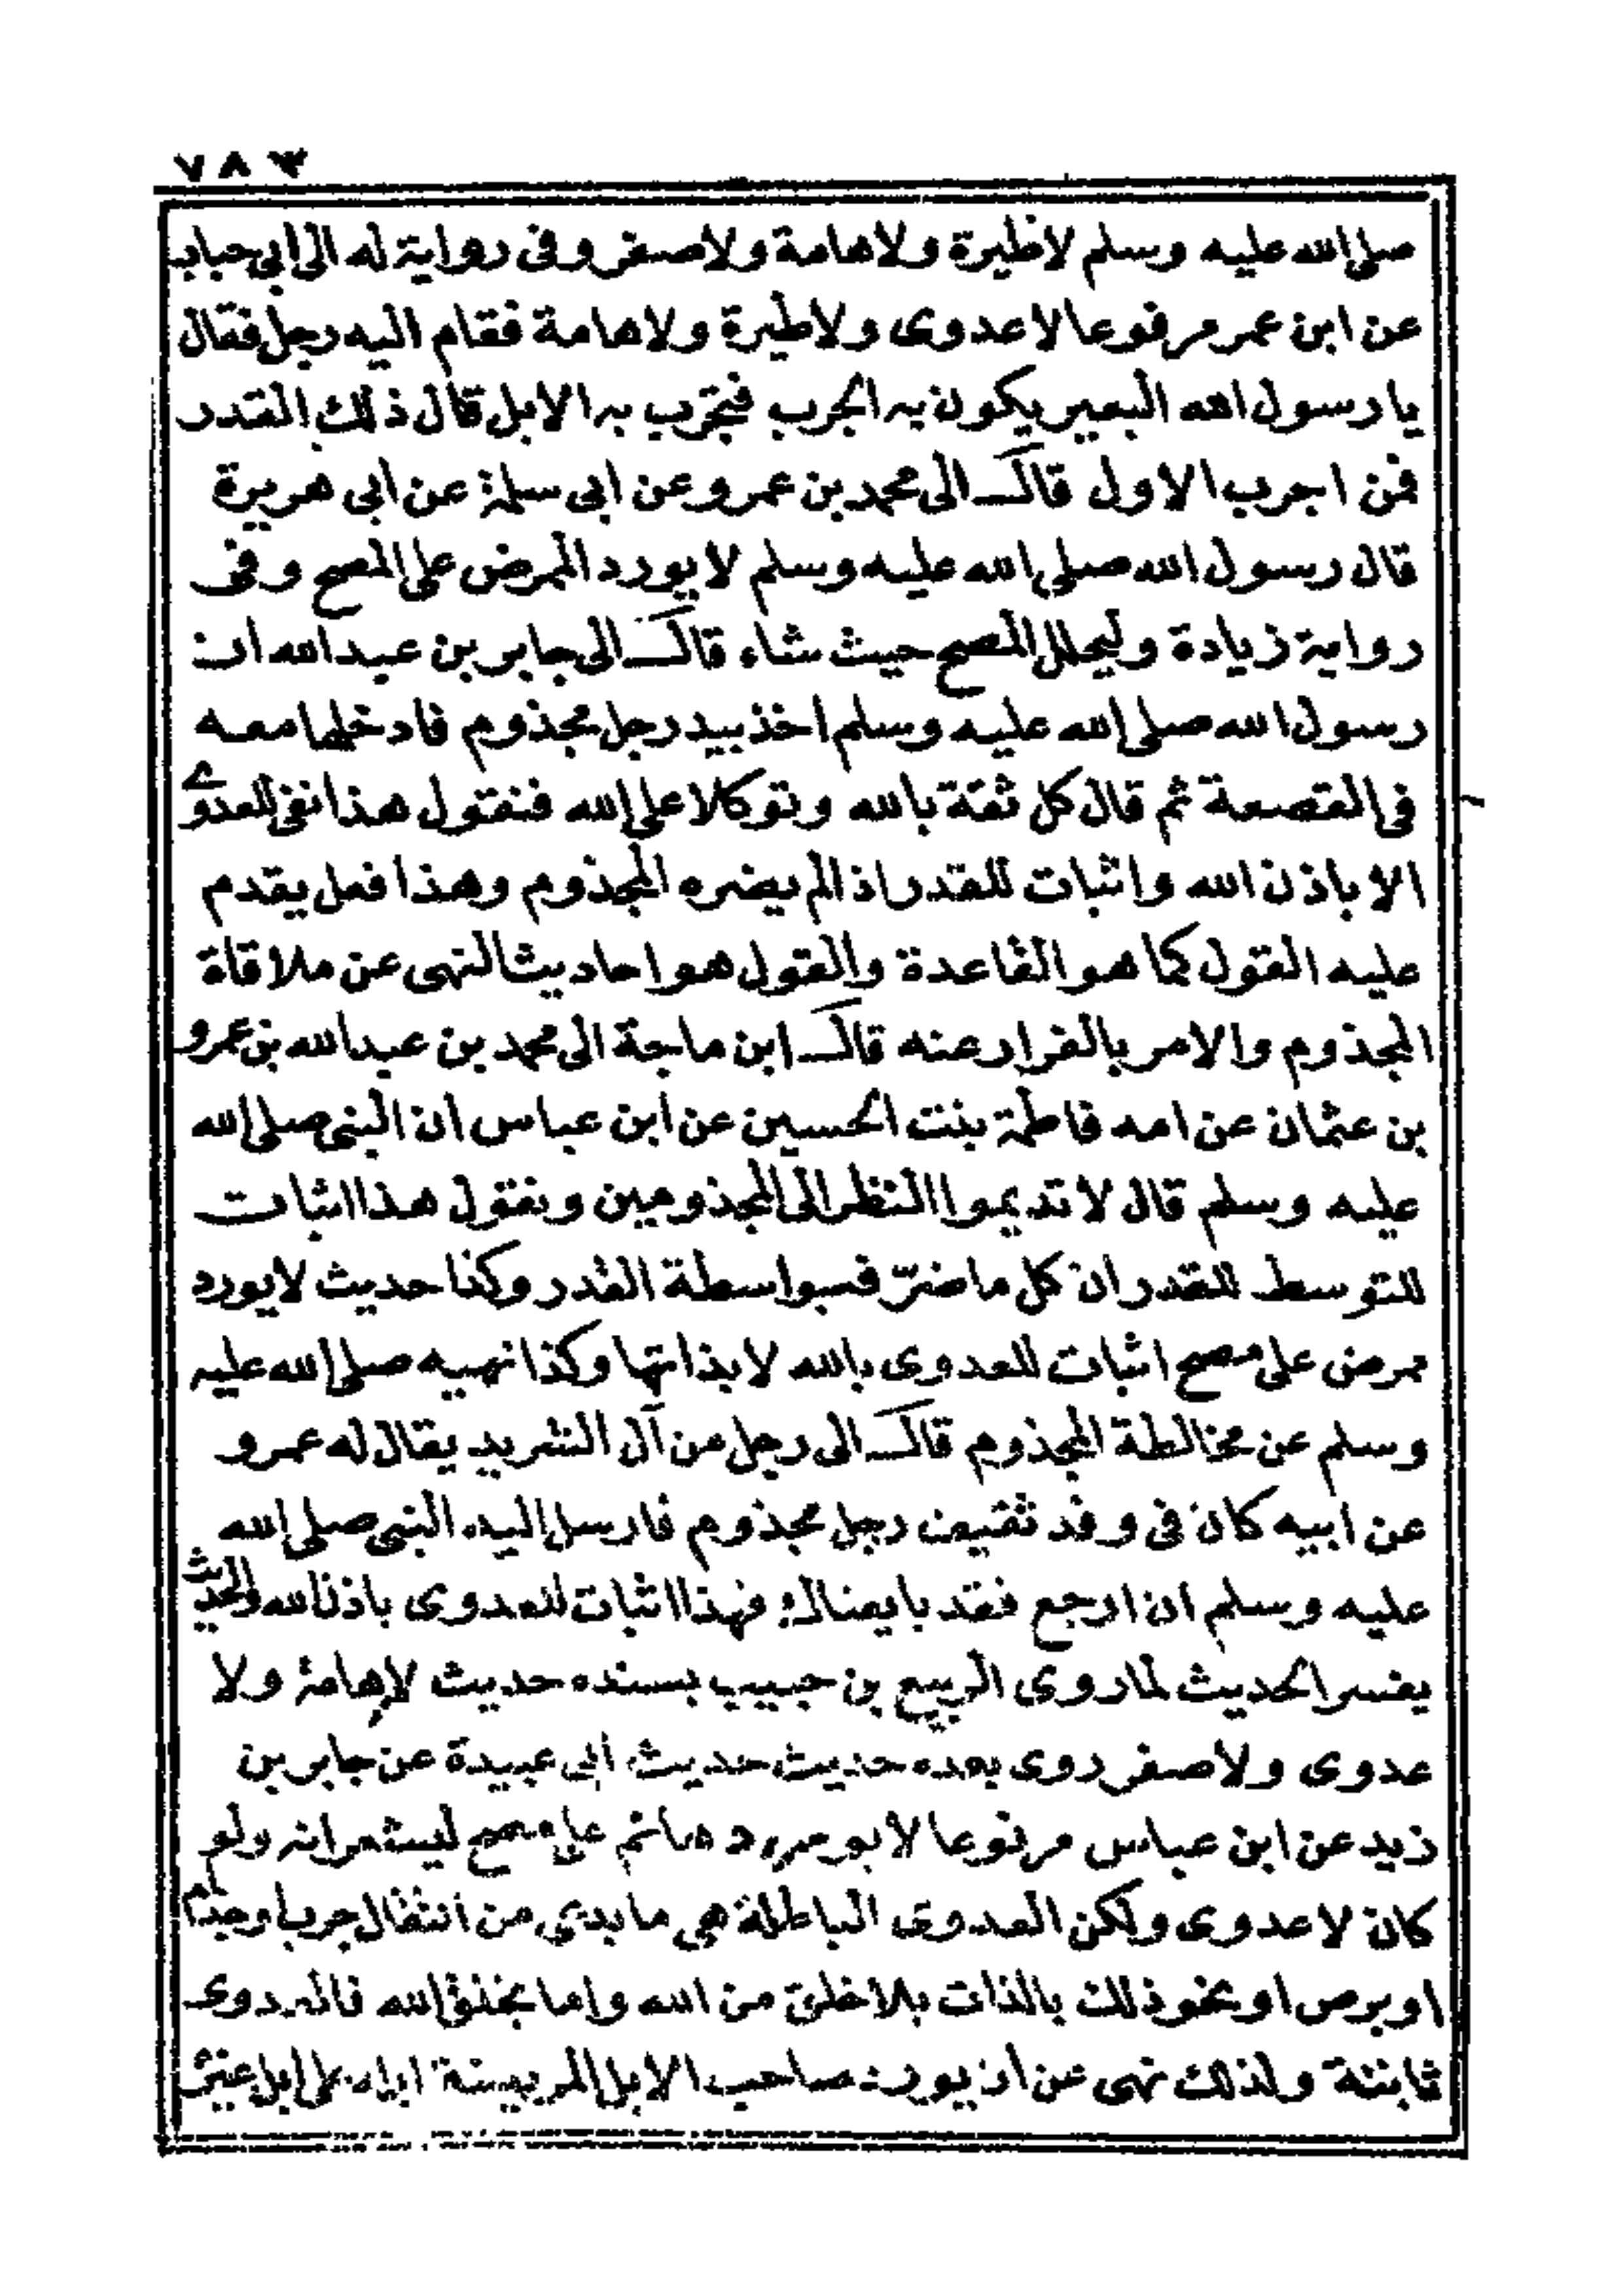 ٧٨٣
صلى الله عليه وسلم لا طيرة ولا هامة ولا صفر وفى رواية له الى ابي حباب
عن ابن عمر مرفوعا لا عدوى ولا طيرة ولا هامة فقام اليه رجل فقال
يا رسول الله البعير يكون به الجرب فتجرب به الابل قال ذلك القدر
فمن اجرب الاول قال الى محمد بن عمرو عن ابى سلمة عن ابى هريرة
قال رسول الله صلى الله عليه وسلم لا يورد الممرض على المصح وفى
رواية زيادة وليحلل المصح حيث شاء قال الى جابر بن عبدالله ان
رسول الله صلى الله عليه وسلم اخذ بيد رجل مجذوم فادخلها معه
فى القصعة ثم قال كل ثقة بالله وتوكلا على الله فنقول هذا نفى للعدوى
الا باذن الله واثبات للقدر اذ الم يضره المجذوم وهذا فعل يقدم
عليه القول كما هو القاعدة والقول هو احاديث النهى عن ملاقاة
المجذوم والامر بالفرار عنه قال ابن ماجة الى محمد بن عبدالله بن عمرو
بن عثمان عن امه فاطمة بنت الحسين عن ابن عباس ان النبى صلى الله
عليه وسلم قال لا تديموا النظر الى المجذومين ونقول هذا اثبات
للتوسط للقدر ان كل ما ضرّ فبواسطة القدر وكذا حديث لا يورد
ممرض على مصح اثبات للعدوى بالله لا بذاتها وكذا نهيه صلى الله عليه
وسلم عن مخالطة المجذوم قال الى رجل من آل الشريد يقال له عمرو
عن ابيه كان فى وفد ثقيف رجل مجذوم فارسل اليه النبى صلى الله
عليه وسلم ان ارجع فقد بايعناك فهذا اثبات للعدوى باذن الله والحديث
يفسر الحديث لما روى الربيع بن حبيب بسنده حديث لا هامة ولا
عدوى ولا صفر روى بعده حديث حديث ابى عبيدة عن جابر بن
زيد عن ابن عباس مرفوعا لا على مصح ليشعر انه ولو
كان لا عدوى ولكن العدوى الباطلة هي ما يدعى من انتقال جرب او جذام
او برص او نحو ذلك بالذات بلا خلق من الله واما بخلق الله فالعدوى
ثابتة ولذلك نهى عن ان يورد صاحب الابل المريضة ابله على ابل